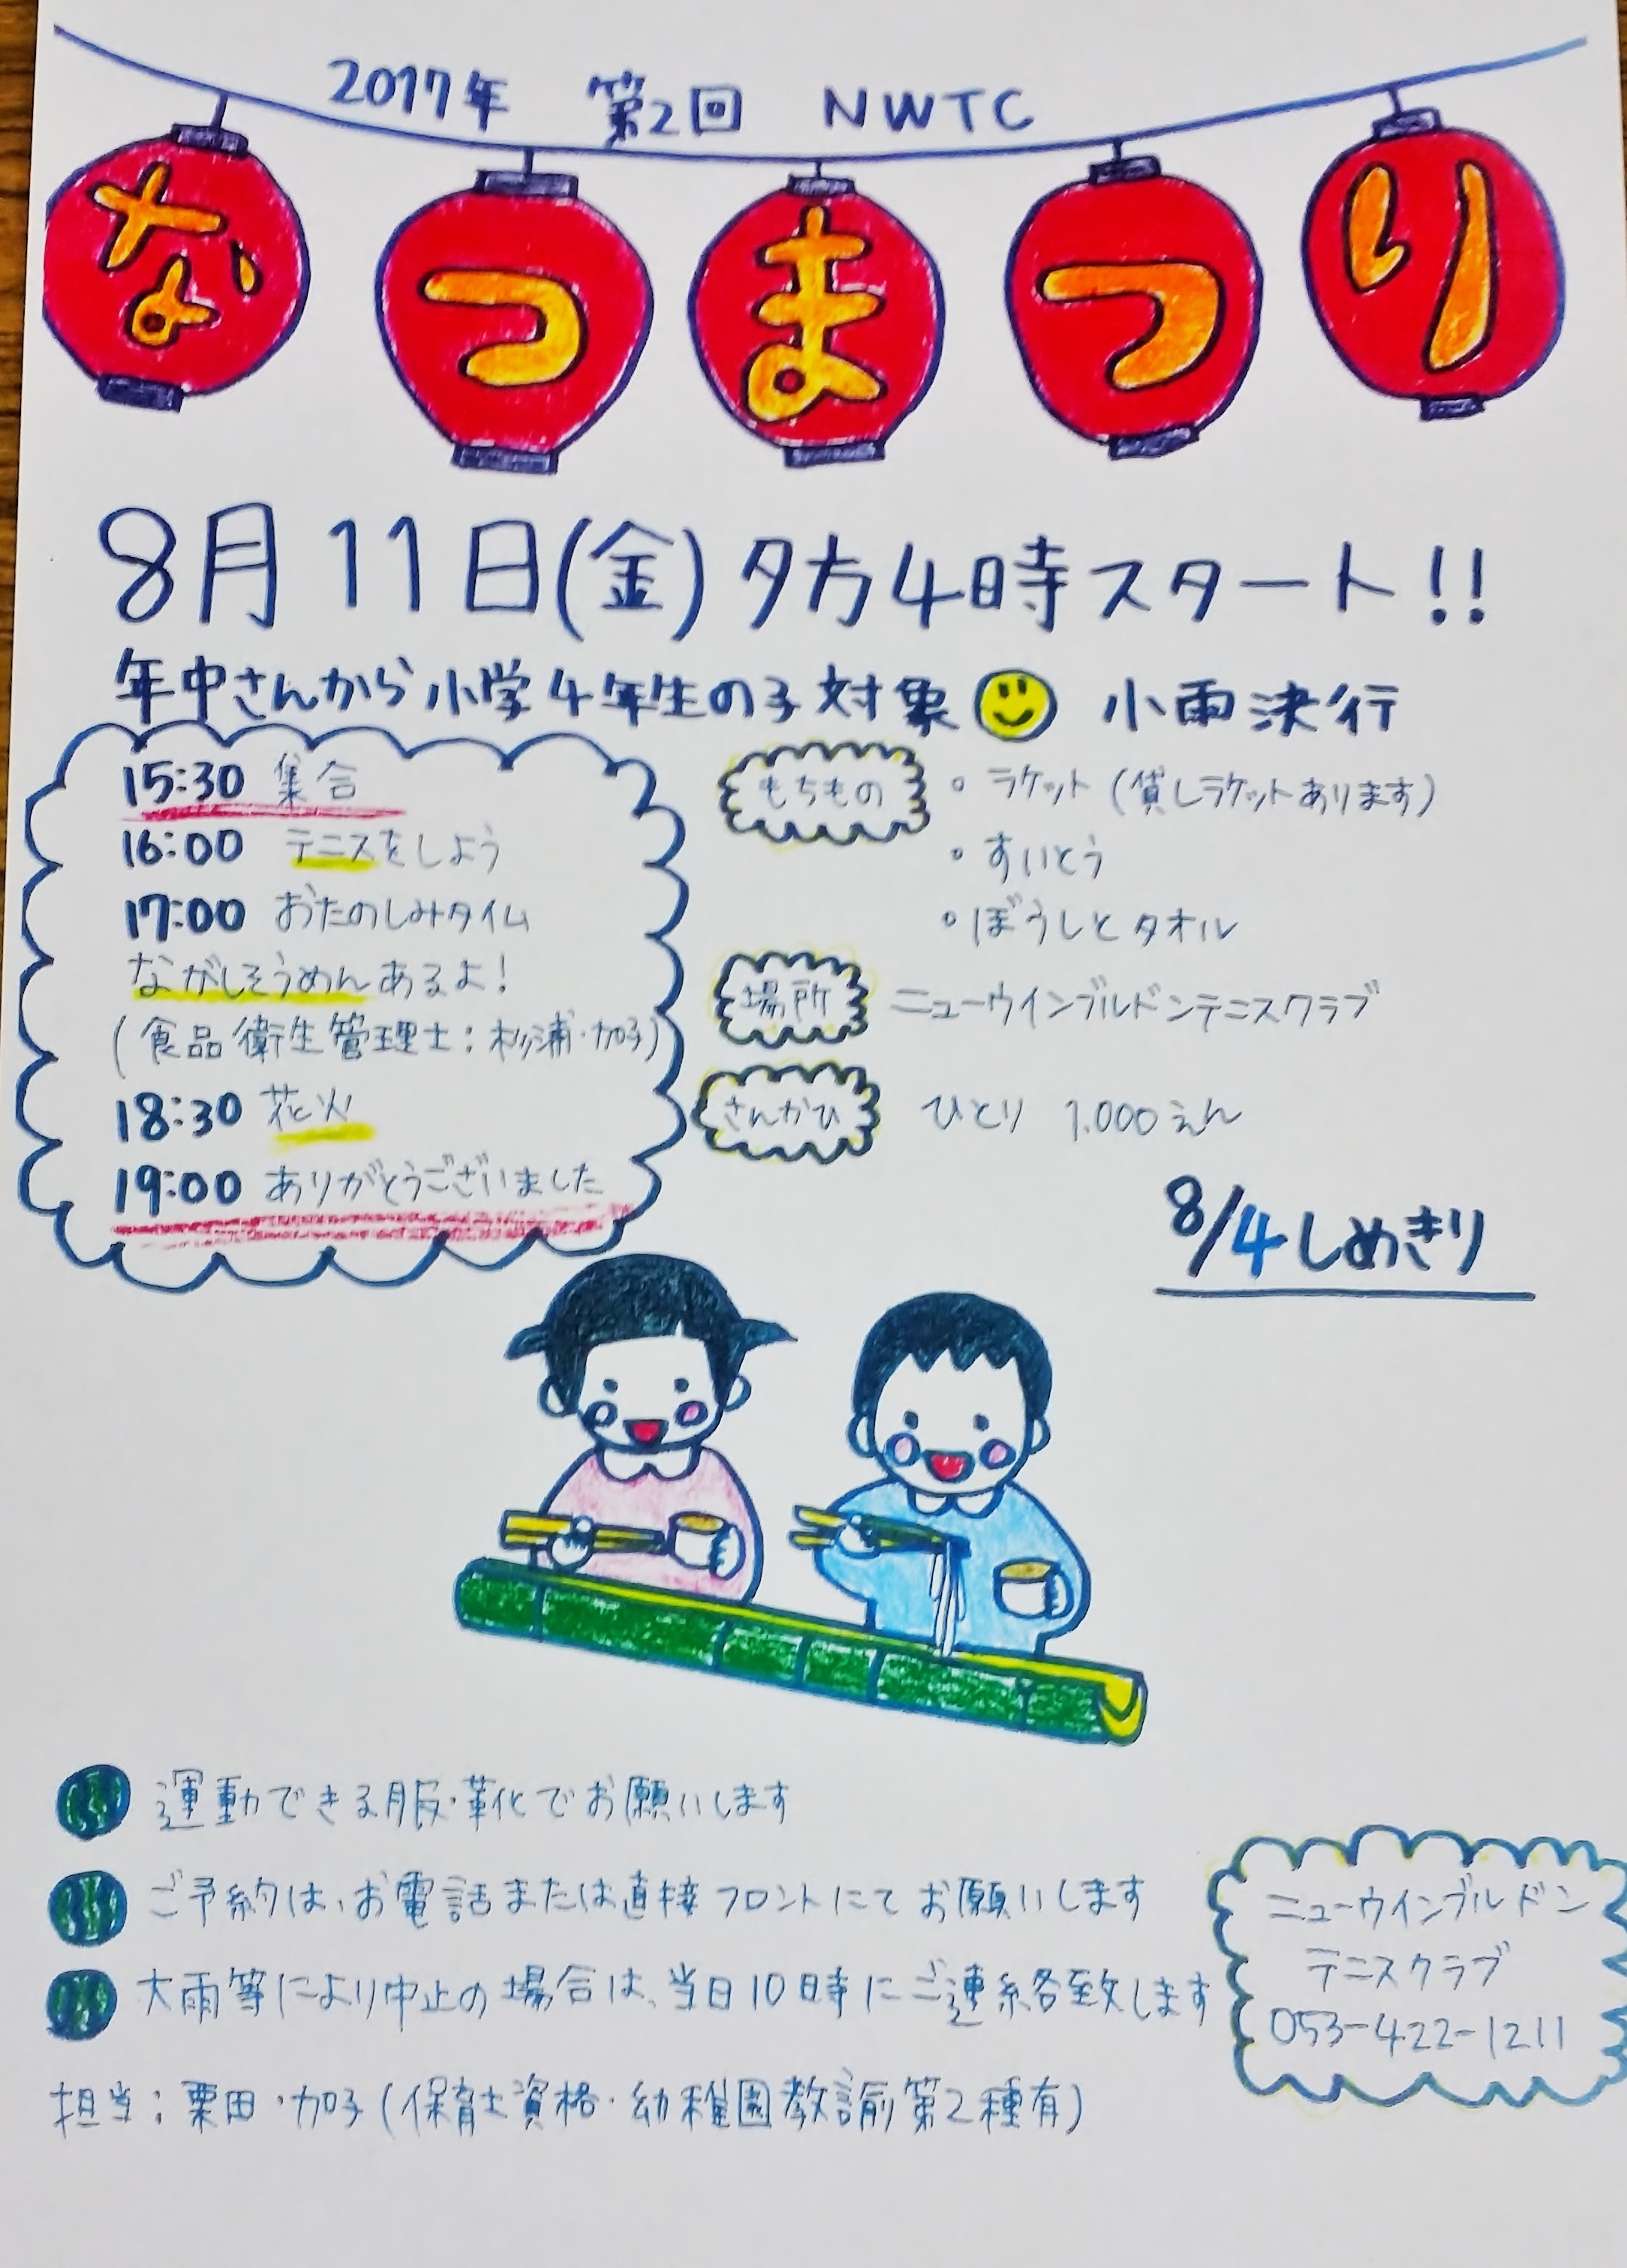 2017年 第2回 NWTC
なつまつり
8月11日(金)夕方4時スタート!!
年中さんから小学4年生の子対象 小雨決行
15:30 集合
16:00 テニスをしよう
17:00 おたのしみタイム
ながしそうめんあるよ!
(食品衛生管理士:杉浦・加子)
18:30 花火
19:00 ありがとうございました
もちもの
・ラケット(貸しラケットあります)
・すいとう
・ぼうしとタオル
場所 ニューウインブルドンテニスクラブ
さんかひ ひとり 1.000えん
8/4しめきり
運動できる服・靴でお願いします
ご予約は、お電話または直接フロントにてお願いします
大雨等により中止の場合は、当日10時にご連絡致します
担当:栗田・加子(保育士資格・幼稚園教諭第2種有)
ニューウインブルドン
テニスクラブ
053-422-1211